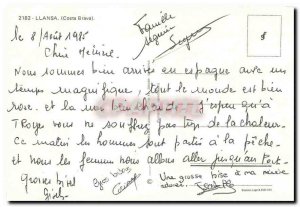 2182 - LLANSA. (Costa Brava)
le 8 Août 1985
Famille
Chère
Nous sommes bien arrivés en espagne avec un
temps magnifique, tout le monde est bien
rose. et la mer bien chaude. J'espere qu'a
Troyes vous ne souffrez pas trop de la chaleur.
Ce matin les hommes sont partis à la pêche.
et nous les femmes nous allons aller jusqu'au Port.
Georges
Gros bisous
Une grosse bise a ma